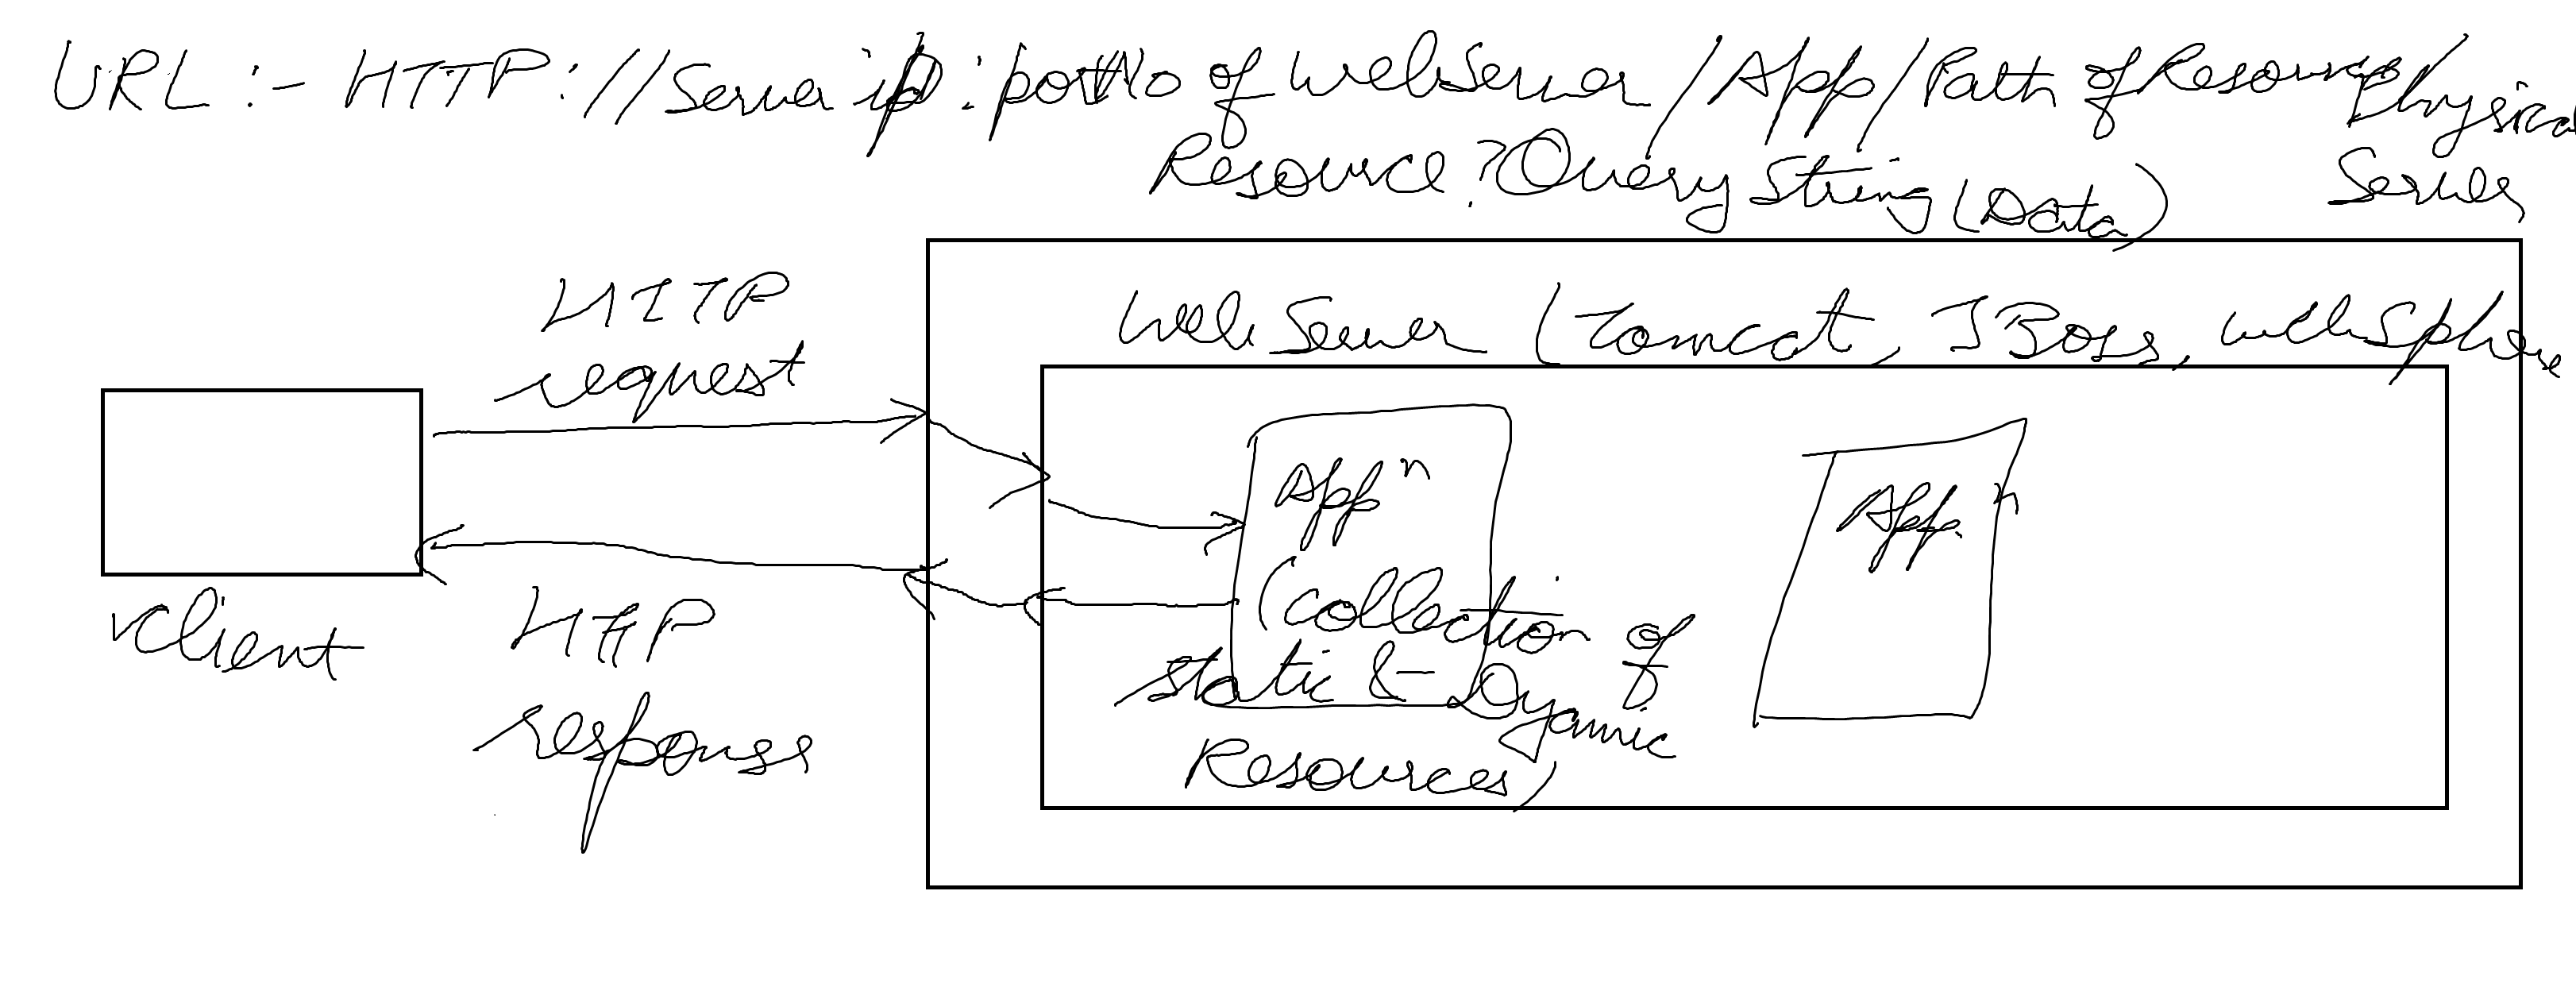 URL :- HTTP://Server ip : portNo of webServer /App/Path of Resource/
Resource?Query String (Data)
Physical
Server
HTTP
request
Web Server (Tomcat, JBoss, webSphere
Appⁿ
(collection of
static & Dyamic
Resources)
Appⁿ
client
HTTP
response